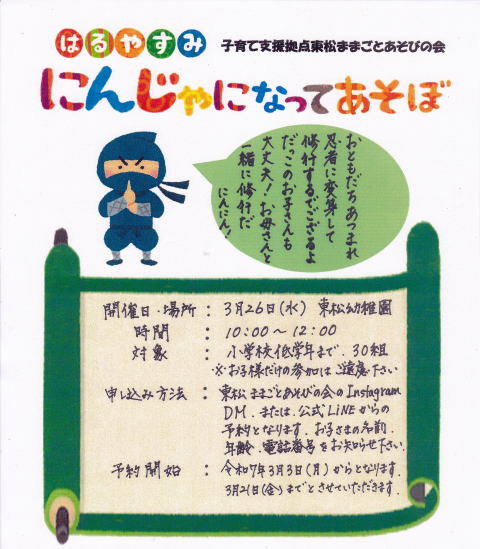 はるやすみ
子育て支援拠点東松ままごとあそびの会
にんじゃになってあそぼ
おともだちあつまれ
忍者に変身して
修行するでござるよ
だっこのお子さんも
大丈夫！お母さんと
一緒に修行だ
にんにん！
開催日・場所 : 3月26日(水) 東松幼稚園
時間 : 10:00～12:00
対象 : 小学校低学年まで．30組
※お子様だけの参加はご遠慮下さい
申し込み方法 : 東松ままごとあそびの会のInstagram
DM．または．公式LINEからの
予約となります．お子さまの名前．
年齢．電話番号をお知らせ下さい．
予約開始 : 令和7年3月3日(月)からとなります．
3月21日(金)までとさせていただきます．